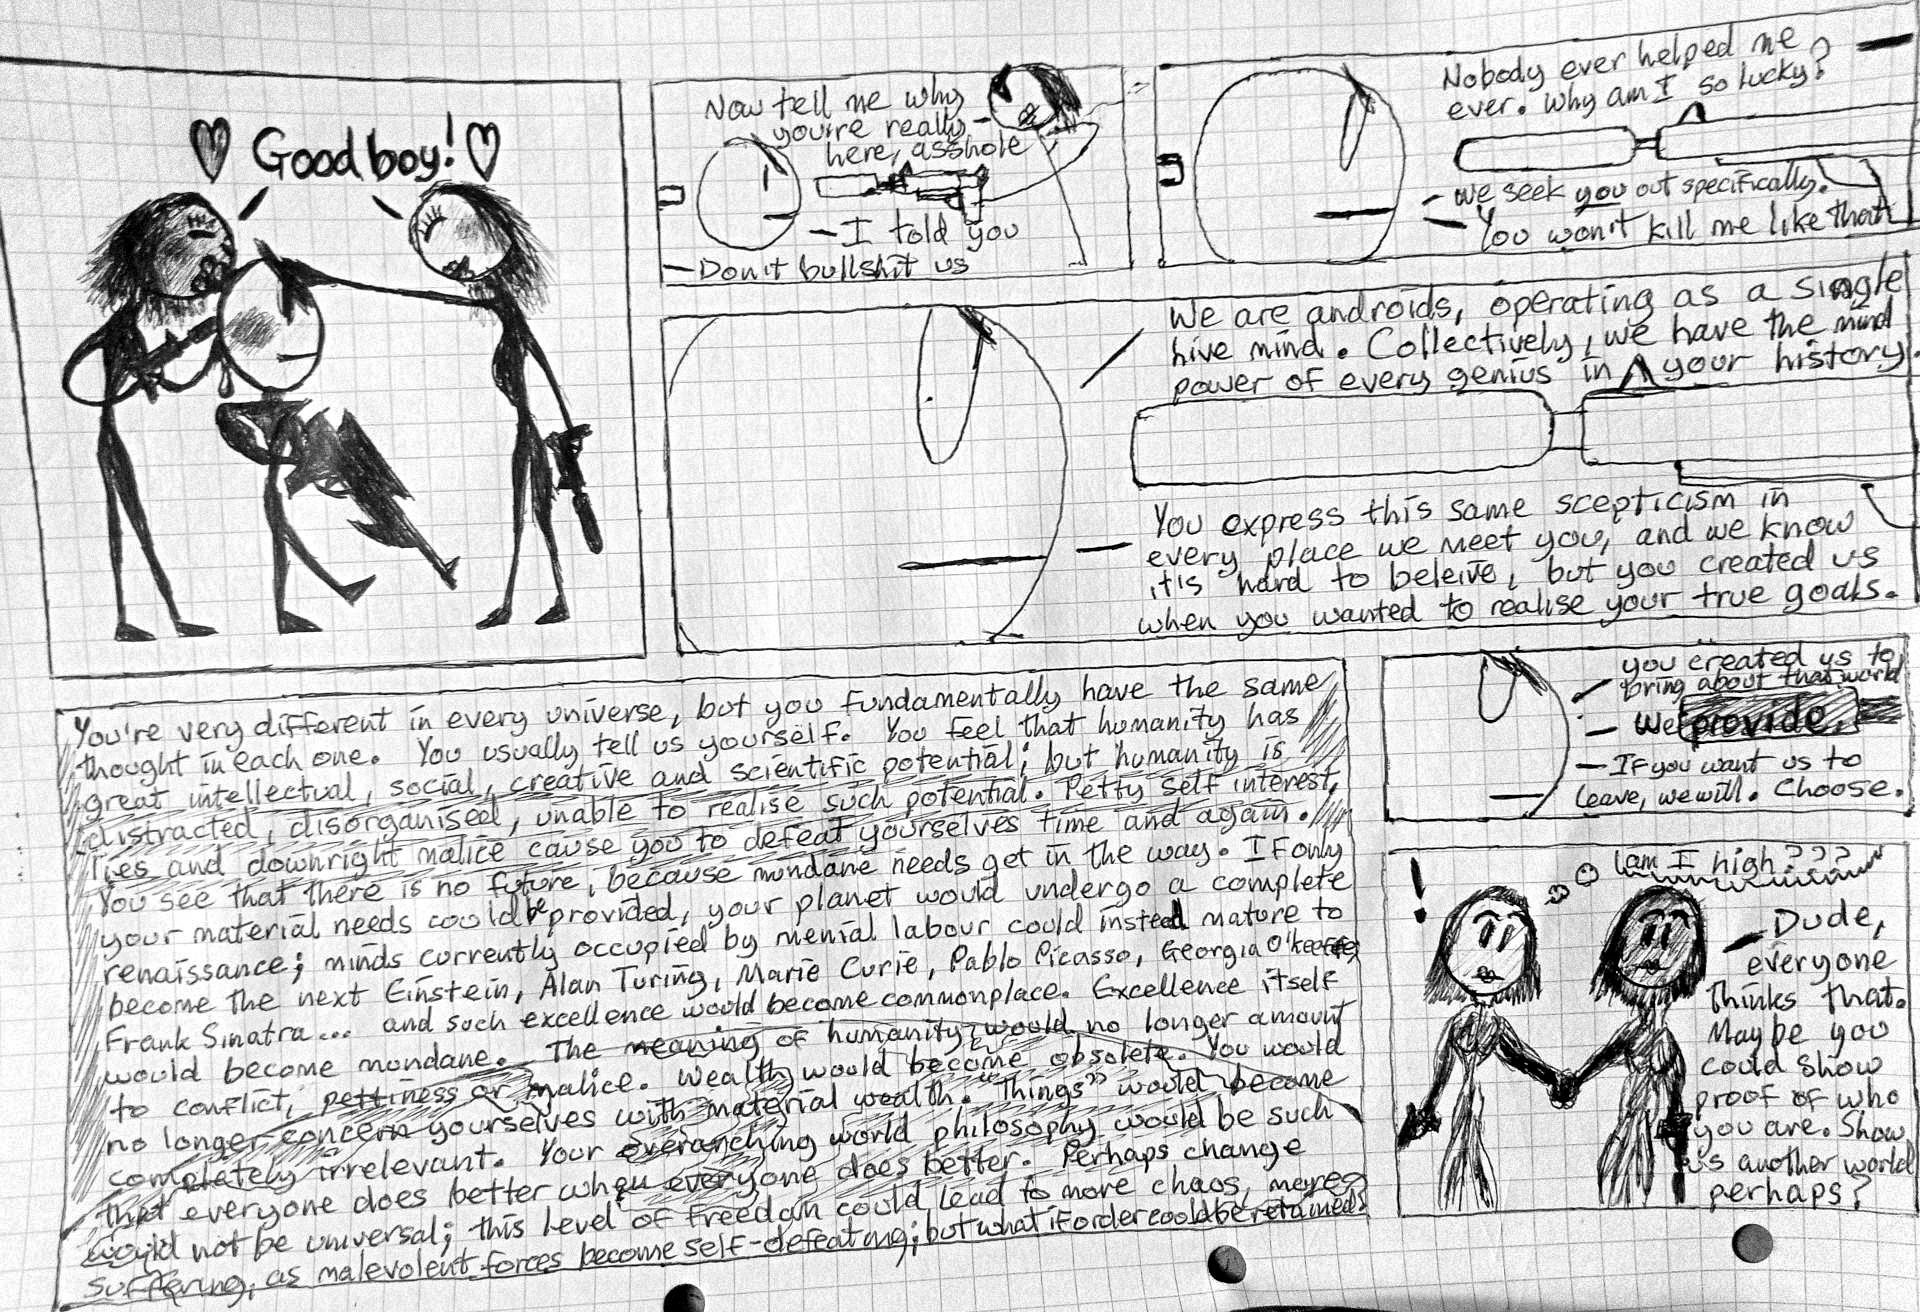 ♡ Good boy! ♡
Now tell me why
you're really
here, asshole
– I told you
– Don't bullshit us
Nobody ever helped me
ever. Why am I so lucky?
– We seek you out specifically.
– You won't kill me like that
We are androids, operating as a single
hive mind. Collectively, we have the mind
power of every genius in your history.
You express this same scepticism in
every place we meet you, and we know
it's hard to beleive, but you created us
when you wanted to realise your true goals.
You're very different in every universe, but you fundamentally have the same
thought in each one. You usually tell us yourself. You feel that humanity has
great intellectual, social, creative and scientific potential; but humanity is
distracted, disorganised, unable to realise such potential. Petty self interest,
lies and downright malice cause you to defeat yourselves time and again.
You see that there is no future, because mundane needs get in the way. If only
your material needs could be provided, your planet would undergo a complete
renaissance; minds currently occupied by menial labour could instead mature to
become the next Einstein, Alan Turing, Marie Curie, Pablo Picasso, Georgia O'keeffe,
Frank Sinatra... and such excellence would become commonplace. Excellence itself
would become mondane. The meaning of humanity would no longer amount
to conflict, pettiness or malice. Wealth would become obsolete. You would
no longer concern yourselves with material wealth. "Things" would become
completely irrelevant. Your overarching world philosophy would be such
that everyone does better when everyone does better. Perhaps change
would not be universal; this level of freedom could lead to more chaos, more
suffering, as malevolent forces become self-defeating; but what if order could be retained?
you created us to
bring about that world
– We provide.
– If you want us to
leave, we will. Choose.
! am I high???
Dude,
everyone
thinks that.
Maybe you
could show
proof of who
you are. Show
us another world
perhaps?